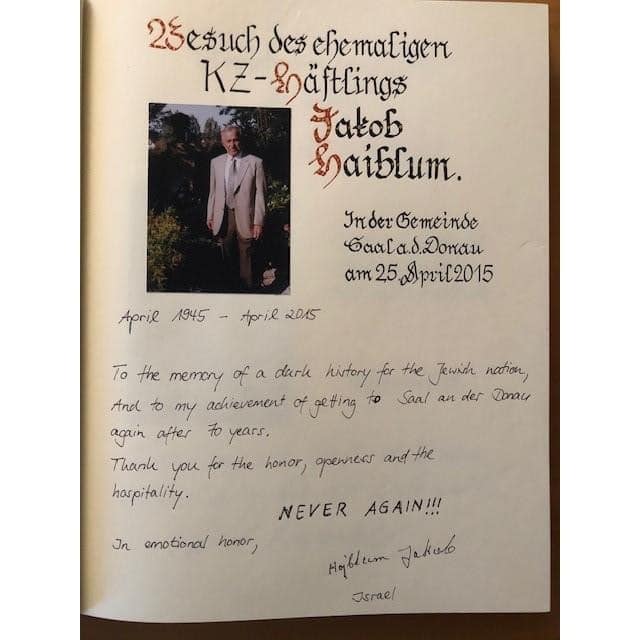 Besuch des ehemaligen
KZ-Häftlings
Jakob
Haiblum.
In der Gemeinde
Saal a.d. Donau
am 25. April 2015
April 1945 - April 2015
To the memory of a dark history for the Jewish nation,
And to my achievement of getting to Saal an der Donau
again after 70 years.
Thank you for the honor, openness and the
hospitality.
NEVER AGAIN!!!
In emotional honor,
Hajblum Jakub
Israel